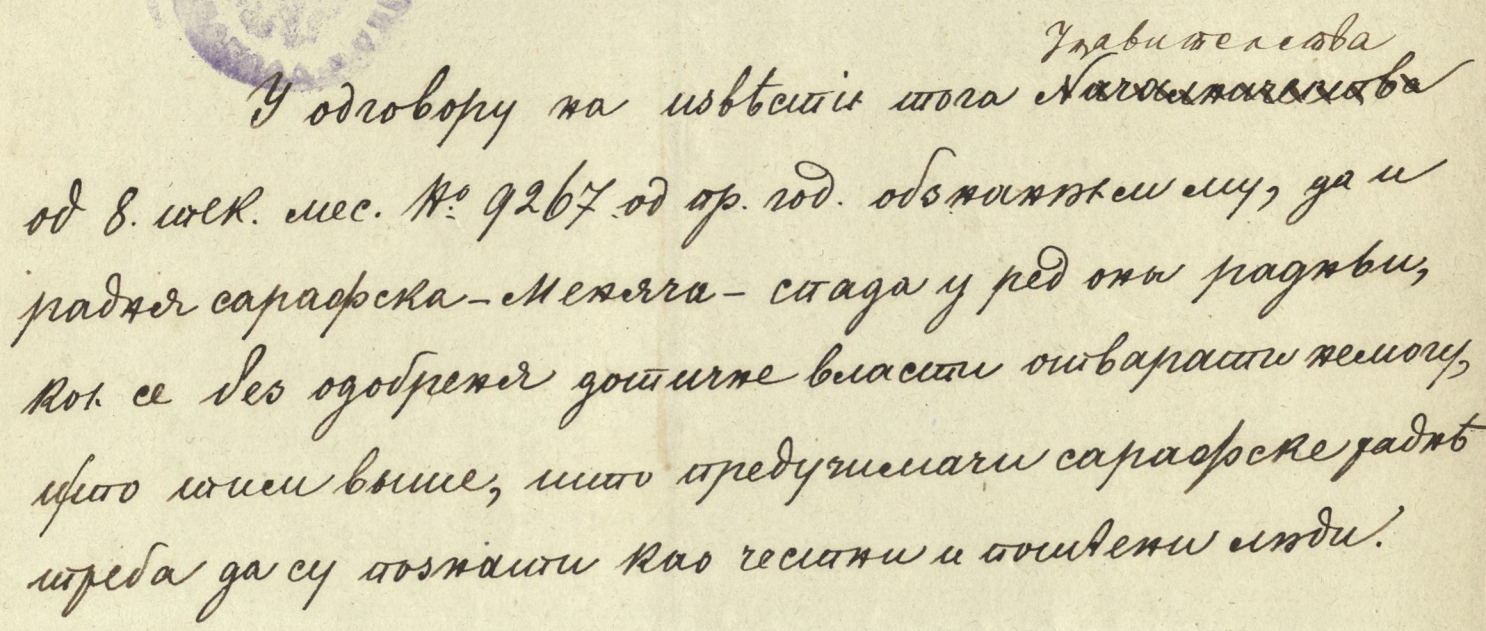 Управителства
У одговору на извѣстіє тога Началничества
од 8. тек. мес. № 9267 од пр. год. обзнанюєм му, да и
радня сарафска – Меняча – спада у ред оны радньи,
коє се без одобреня дотичне власти отварати немогу,
и то тим выше, што предузимачи сарафске раднѣ
треба да су познати као честни и поштени люди.